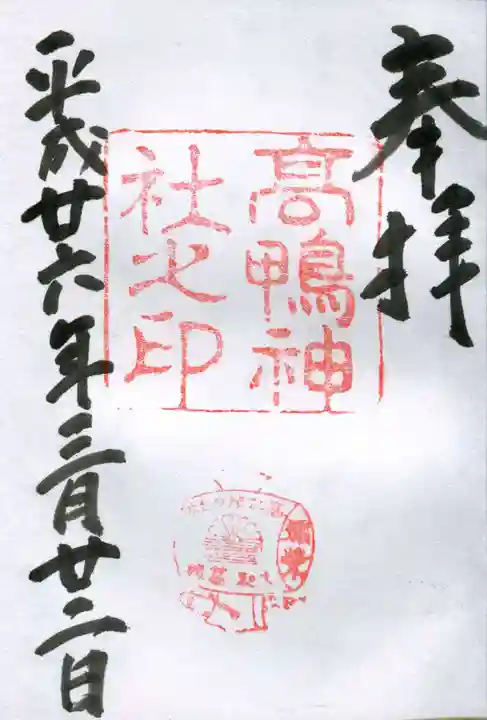 奉拝
髙鴨神
社之印
平成廿六年三月廿二日